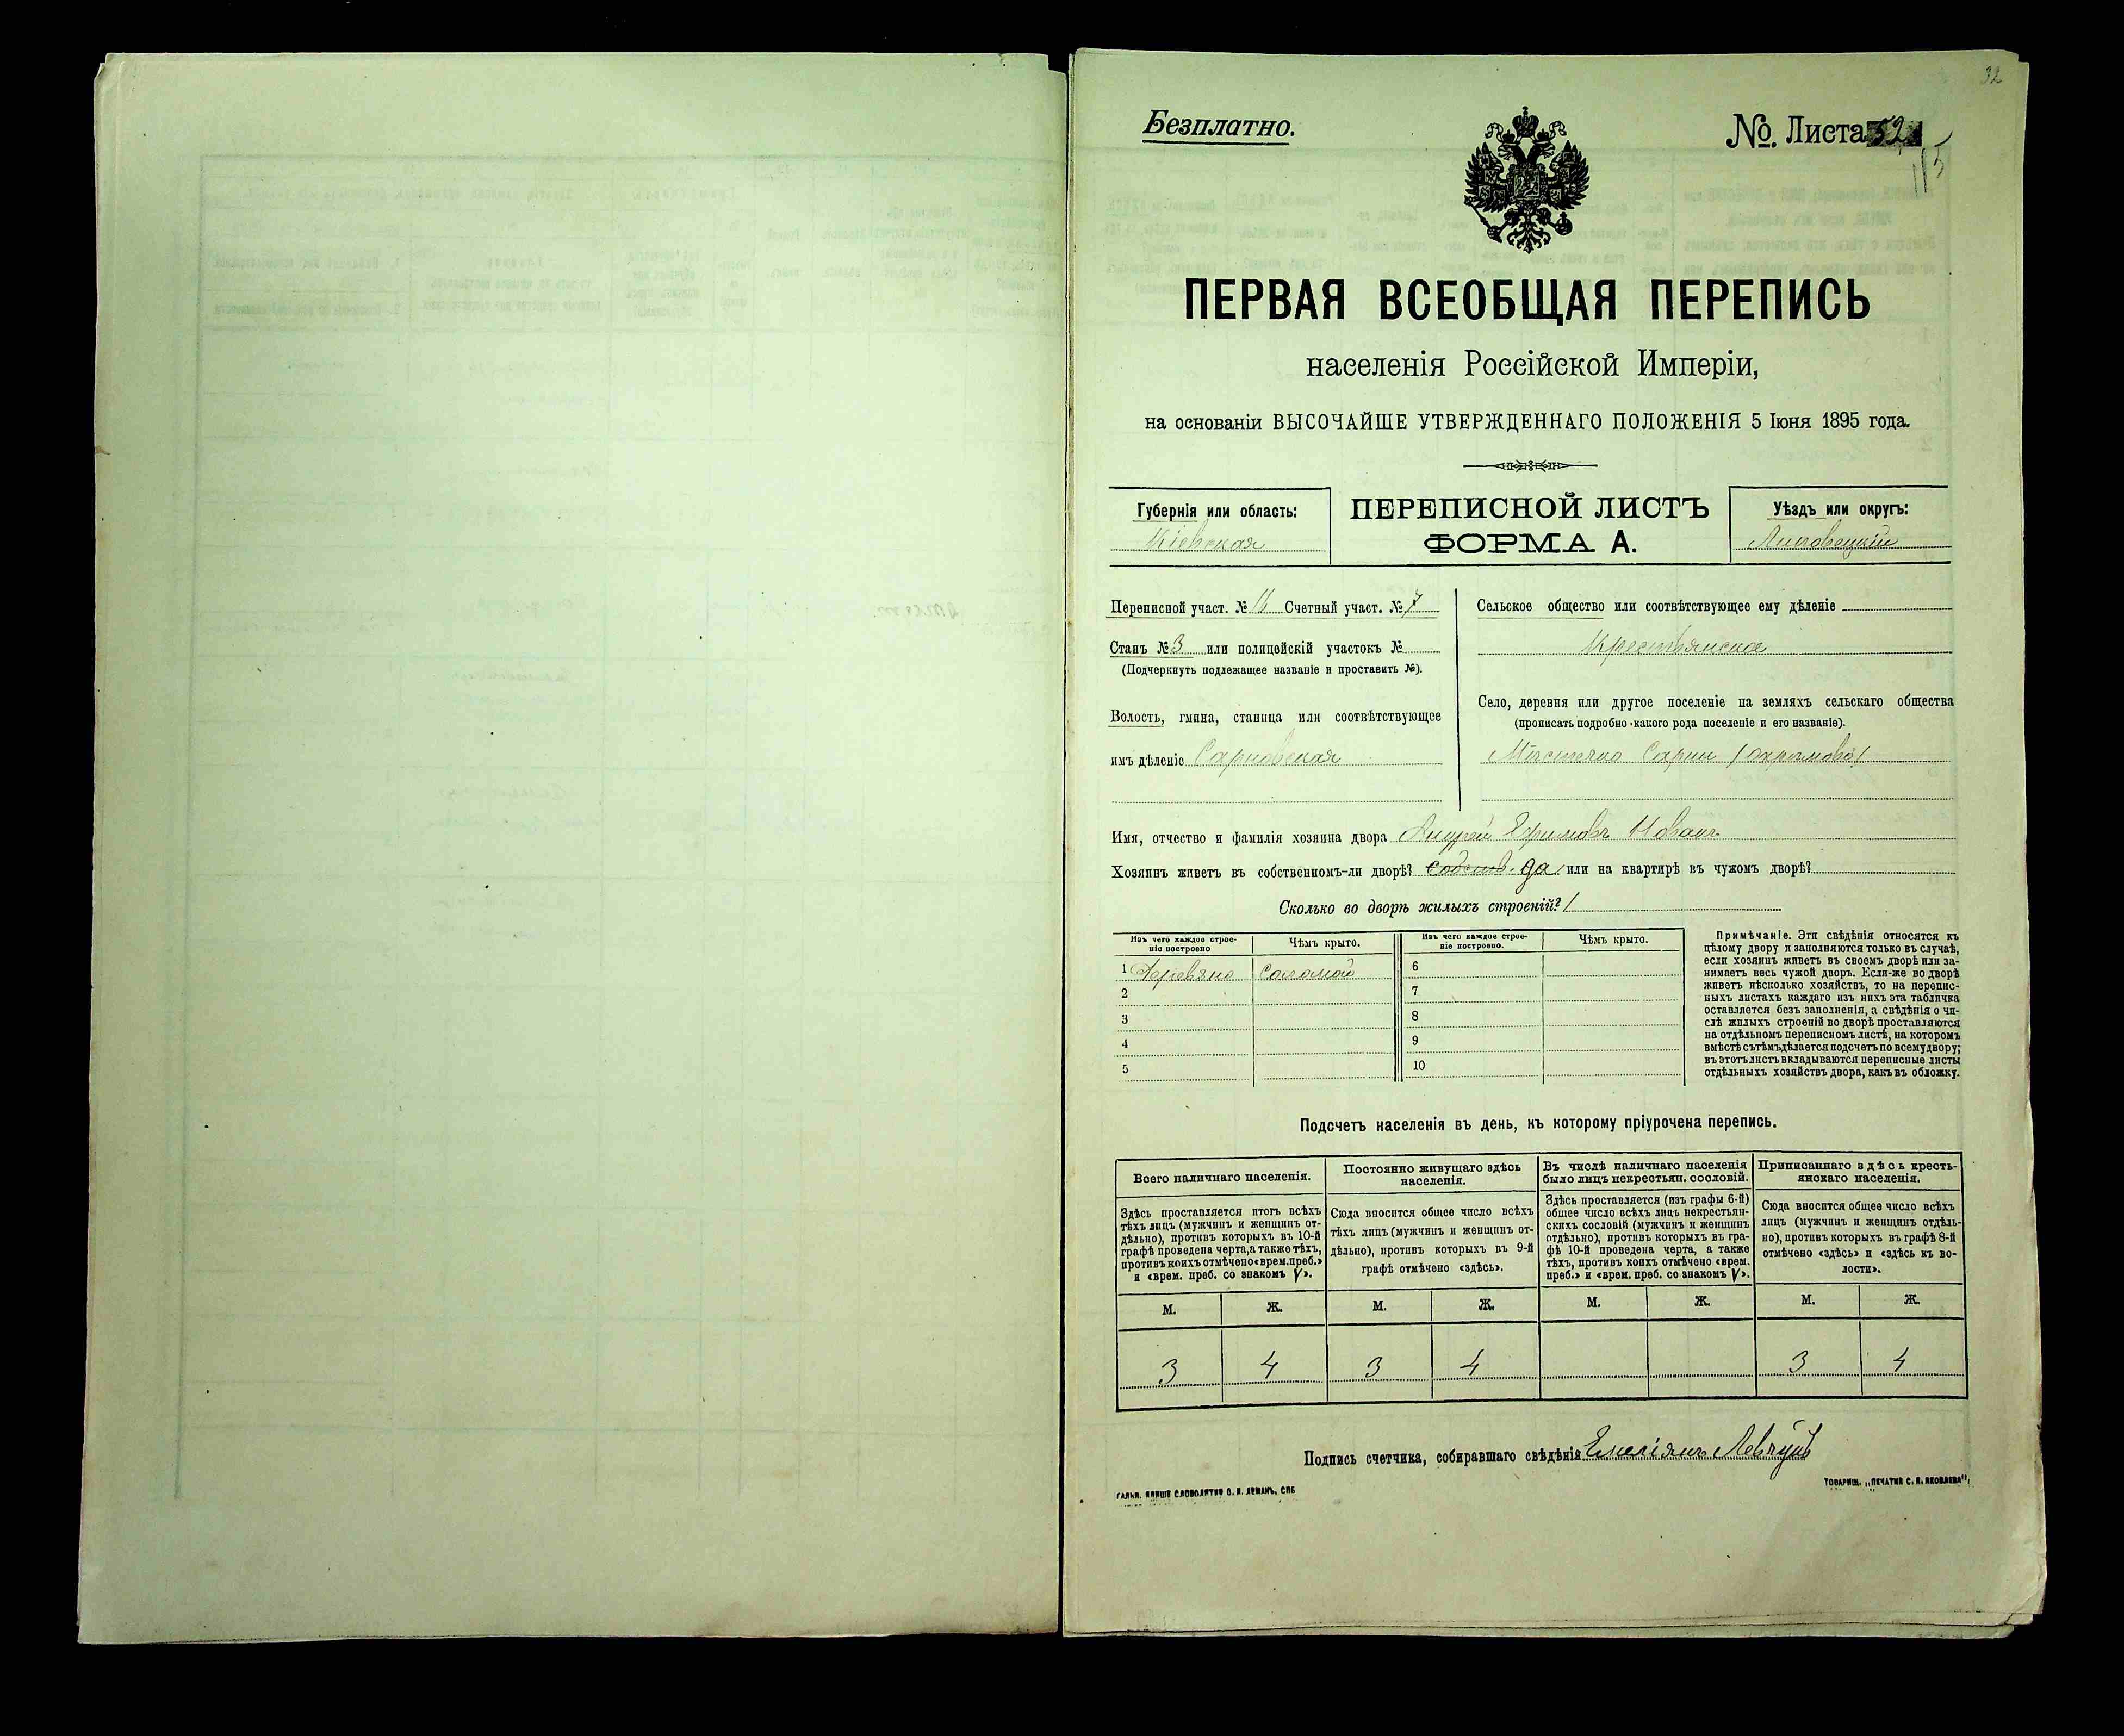 32
Безплатно.
№. Листа 52
115
ПЕРВАЯ ВСЕОБЩАЯ ПЕРЕПИСЬ
населенія Россійской Имперіи,
на основаніи ВЫСОЧАЙШЕ УТВЕРЖДЕННАГО ПОЛОЖЕНІЯ 5 Іюня 1895 года.
Губернія или область:
Кіевская
ПЕРЕПИСНОЙ ЛИСТЪ
ФОРМА А.
Уѣздъ или округъ:
Липовецкій
Переписной участ. № 16 Счетный участ. № 7
Станъ № 3 или полицейскій участокъ №
(Подчеркнуть подлежащее названіе и проставить №).
Волость, гмина, станица или соотвѣтствующее
имъ дѣленіе Сарновская
Сельское общество или соотвѣтствующее ему дѣленіе
Крестьянское
Село, деревня или другое поселеніе на земляхъ сельскаго общества
(прописать подробно какого рода поселеніе и его названіе).
Мѣстечко Сарни (охромово)
Имя, отчество и фамилія хозяина двора Андрей Ефимовъ Новакъ
Хозяинъ живетъ въ собственномъ-ли дворѣ? собств. да или на квартирѣ въ чужомъ дворѣ?
Сколько во дворѣ жилыхъ строеній? 1
Изъ чего каждое строе-
ніе построено
Чѣмъ крыто.
Изъ чего каждое строе-
ніе построено.
Чѣмъ крыто.
1 Деревяно Соломой
2
3
4
5
6
7
8
9
10
Примѣчаніе. Эти свѣдѣнія относятся къ
цѣлому двору и заполняются только въ случаѣ,
если хозяинъ живетъ въ своемъ дворѣ или за-
нимаетъ весь чужой дворъ. Если-же во дворѣ
живетъ нѣсколько хозяйствъ, то на перепис-
ныхъ листахъ каждаго изъ нихъ эта табличка
оставляется безъ заполненія, а свѣдѣнія о чи-
слѣ жилыхъ строеній во дворѣ проставляются
на отдѣльномъ переписномъ листѣ, на которомъ
вмѣстѣ съ тѣмъ дѣлается подсчетъ по всему двору;
въ этотъ листъ вкладываются переписные листы
отдѣльныхъ хозяйствъ двора, какъ въ обложку.
Подсчетъ населенія въ день, къ которому пріурочена перепись.
Всего наличнаго населенія.
Здѣсь проставляется итогъ всѣхъ
тѣхъ лицъ (мужчинъ и женщинъ от-
дѣльно), противъ которыхъ въ 10-й
графѣ проведена черта, а также тѣхъ,
противъ коихъ отмѣчено «врем. преб.»
и «врем. преб. со знакомъ V».
Постоянно живущаго здѣсь
населенія.
Сюда вносится общее число всѣхъ
тѣхъ лицъ (мужчинъ и женщинъ от-
дѣльно), противъ которыхъ въ 9-й
графѣ отмѣчено «здѣсь».
Въ числѣ наличнаго населенія
было лицъ некрестьян. сословій.
Здѣсь проставляется (изъ графы 6-й)
общее число всѣхъ лицъ некрестьян-
скихъ сословій (мужчинъ и женщинъ
отдѣльно), противъ которыхъ въ гра-
фѣ 10-й проведена черта, а также
тѣхъ, противъ коихъ отмѣчено «врем.
преб.» и «врем. преб. со знакомъ V».
Приписаннаго здѣсь кресть-
янскаго населенія.
Сюда вносится общее число всѣхъ
лицъ (мужчинъ и женщинъ отдѣль-
но), противъ которыхъ въ графѣ 8-й
отмѣчено «здѣсь» и «здѣсь къ во-
лости».
М. Ж. М. Ж. М. Ж. М. Ж.
3 4 3 4 3 4
Подпись счетчика, собиравшаго свѣдѣнія Емеліянъ Левчукъ
ГАЛЬВ. КЛИШЕ СЛОВОЛИТНИ О. И. ЛЕМАНЪ, СПБ
ТОВАРИЩ. „ПЕЧАТНЯ С. П. ЯКОВЛЕВА"